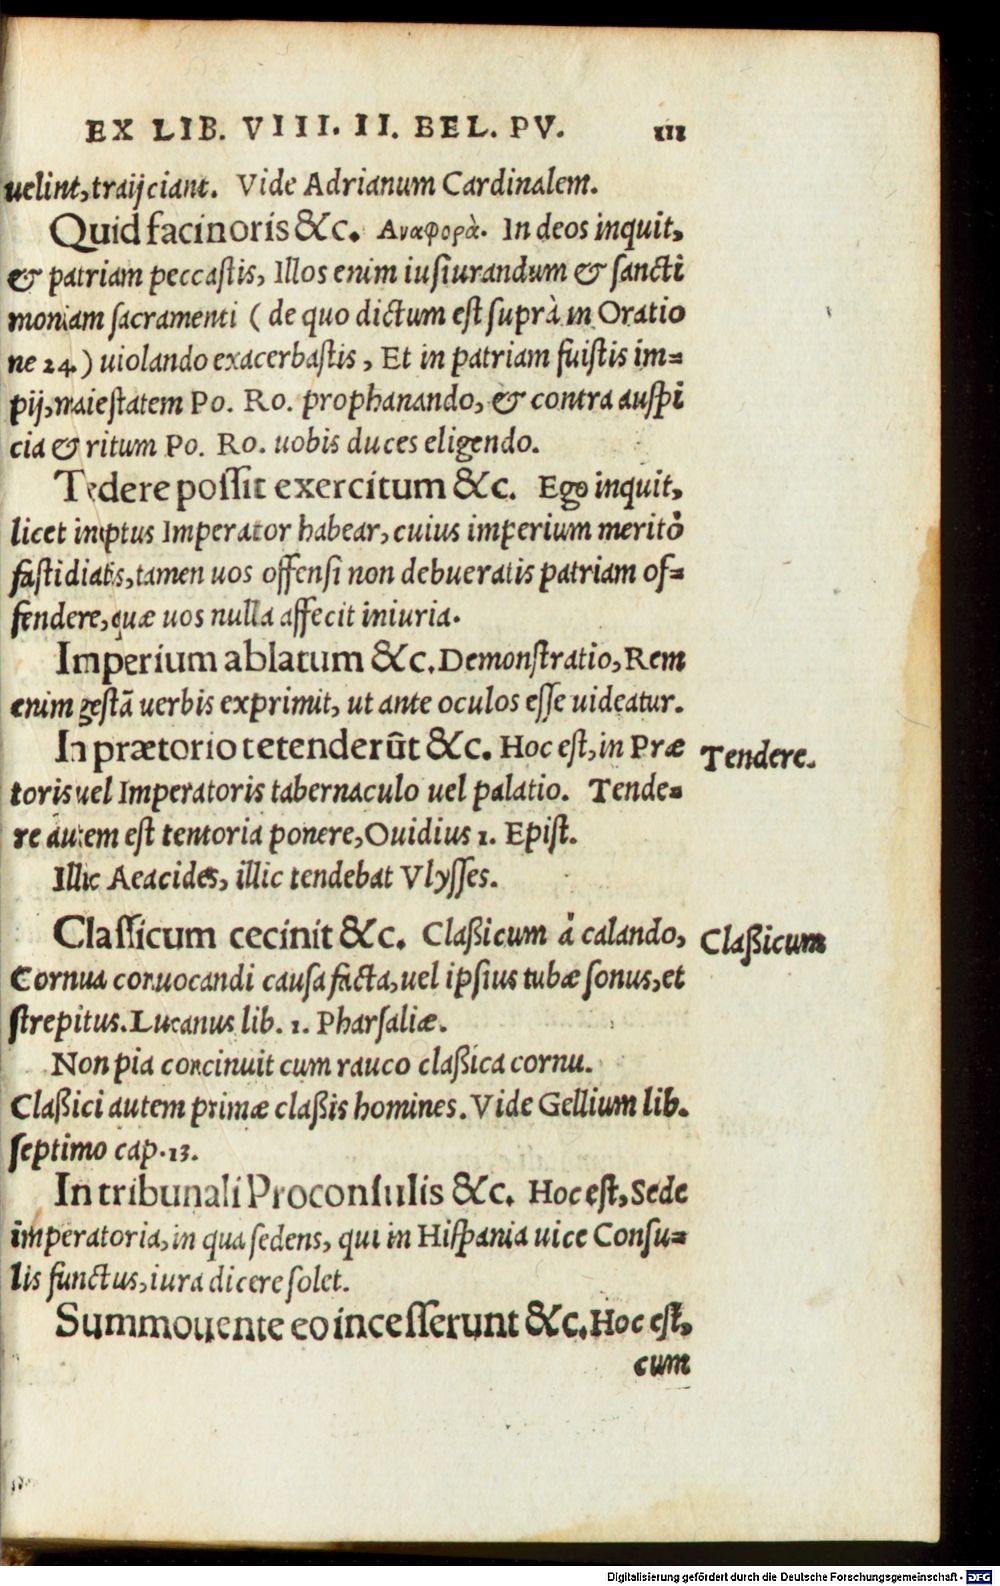 EX LIB. VIII. II. BEL. PV. 111
uelint, traijciant. Vide Adrianum Cardinalem.
Quid facinoris &c. Αναφορὰ. In deos inquit,
& patriam peccastis, Illos enim iusiurandum & sancti
moniam sacramenti ( de quo dictum est suprà in Oratio
ne 24. ) uiolando exacerbastis, Et in patriam fuistis im=
pij, maiestatem Po. Ro. prophanando, & contra auspi
cia & ritum Po. Ro. uobis duces eligendo.
Tedere possit exercitum &c. Ego inquit,
licet ineptus Imperator habear, cuius imperium meritò
fastidiatis, tamen uos offensi non debueratis patriam of=
fendere, quæ uos nulla affecit iniuria.
Imperium ablatum &c. Demonstratio, Rem
enim gestã uerbis exprimit, ut ante oculos esse uideatur.
In prætorio tetenderũt &c. Hoc est, in Præ
Tendere.
toris uel Imperatoris tabernaculo uel palatio. Tende=
re autem est tentoria ponere, Ouidius 1. Epist.
Illic Aeacides, illic tendebat Vlysses.
Classicum cecinit &c. Claßicum à calando,
Claßicum
Cornua conuocandi causa facta, uel ipsius tubæ sonus, et
strepitus. Lucanus lib. 1. Pharsaliæ.
Non pia concinuit cum rauco claßica cornu.
Claßici autem primæ claßis homines. Vide Gellium lib.
septimo cap. 13.
In tribunali Proconsulis &c. Hoc est, Sede
imperatoria, in qua sedens, qui in Hispania uice Consu=
lis functus, iura dicere solet.
Summouente eo incesserunt &c. Hoc est,
cum
Digitalisierung gefördert durch die Deutsche Forschungsgemeinschaft - DFG